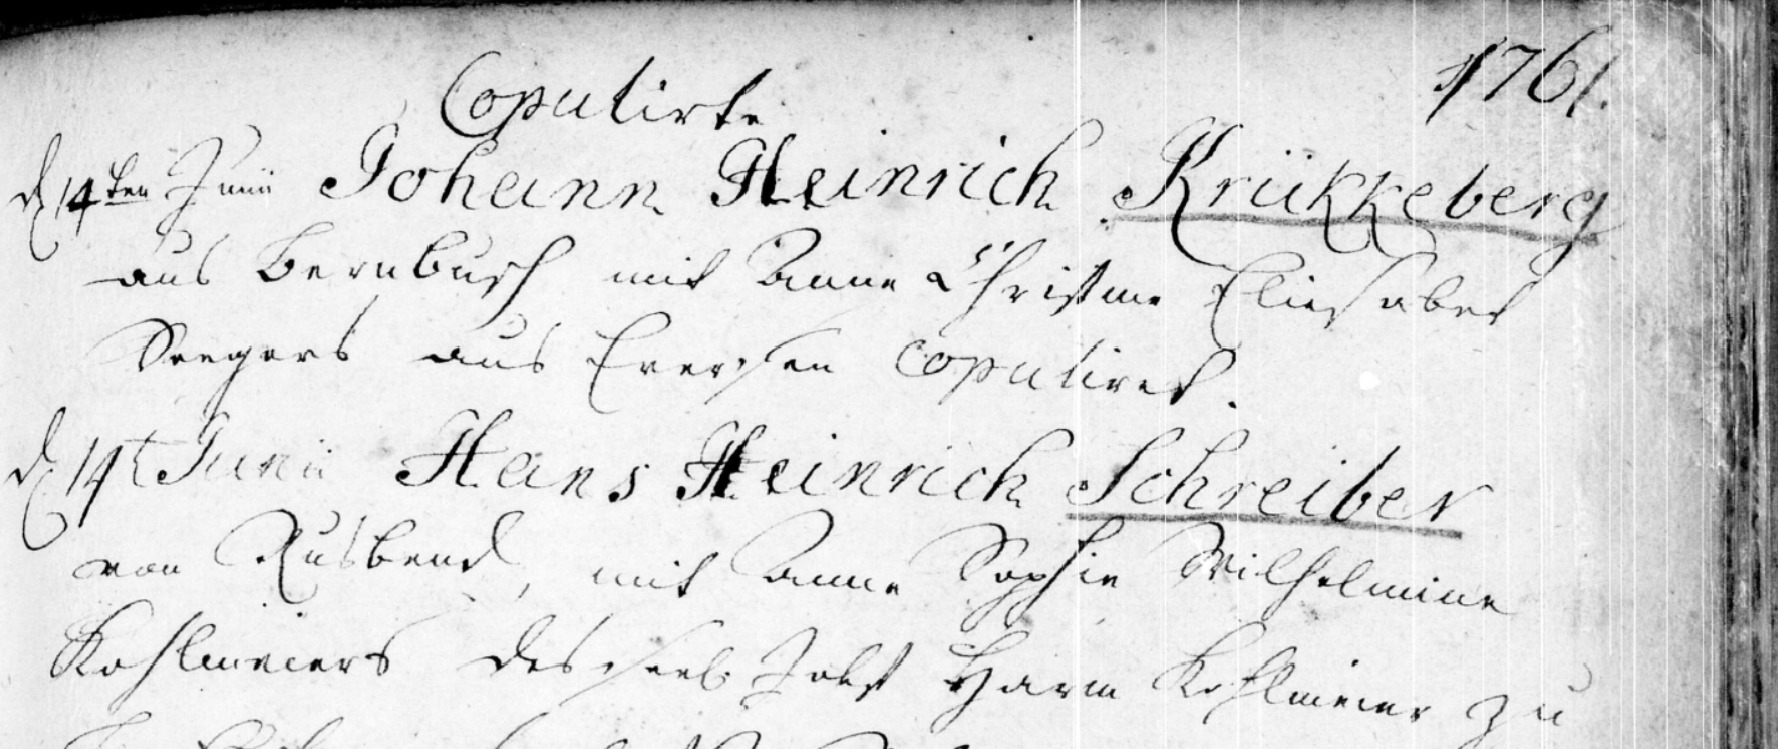 Copulirte 1761.
d 14ten Junii Johann Heinrich Krükkeberg
aus Bernbusch mit Anne Christine Eliesabet
Seegers aus Eversen copuliret.
d 14t Junii Hans Heinrich Schreiber
von Rusbend, mit Anne Sophie Wilhelmine
Kohlmeiers des seel. Jobst Harm Kohlmeier zu